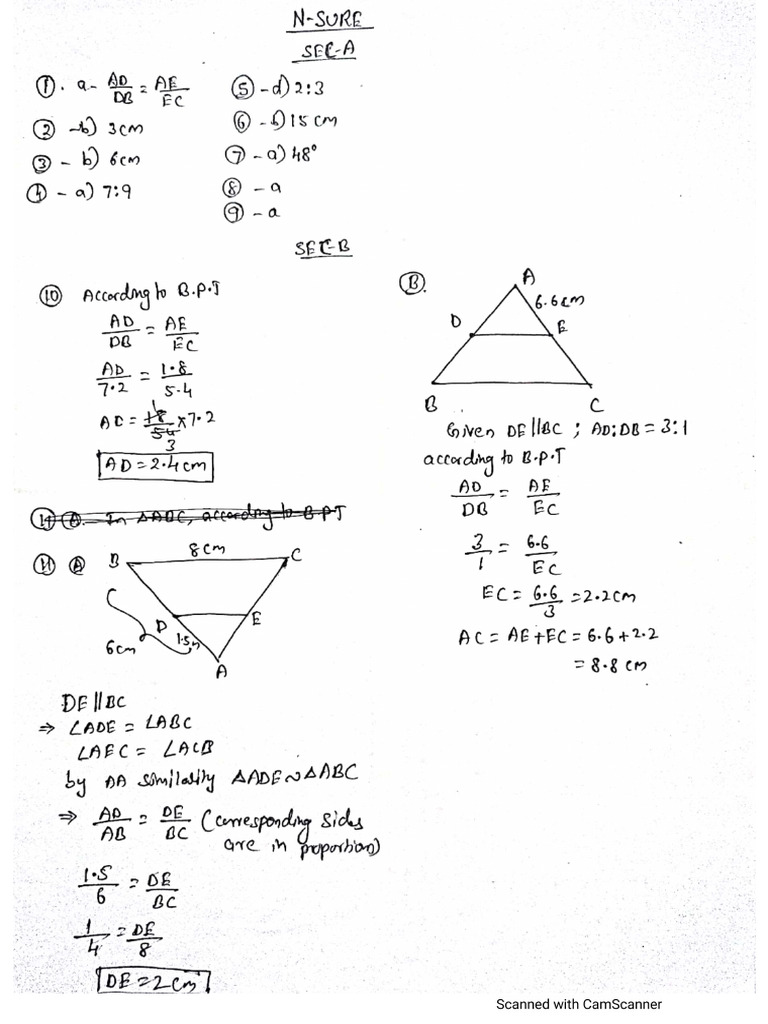 N-SURE
SEC-A
①. a- AD/DB = AE/EC
② -b) 3cm
③ - b) 6cm
④ - a) 7:9
⑤ -d) 2:3
⑥ -b) 15cm
⑦ -a) 48°
⑧ -a
⑨ -a
SEC-B
⑩ According to B.P.T
AD/DB = AE/EC
AD/7.2 = 1.8/5.4
AD = 18/54 x 7.2
1
3
AD = 2.4cm
⑪ Ⓐ. In ΔABC, according to BPT
⑪ Ⓐ
B
8cm
C
D
E
1.5
6cm
A
DE||BC
⇒ ∠ADE = ∠ABC
∠AEC = ∠ACB
by AA similarity ΔADE ~ ΔABC
⇒ AD/AB = DE/BC (corresponding sides
are in proportion)
1.5/6 = DE/BC
1/4 = DE/8
DE = 2cm
Ⓑ.
A
6.6cm
D
E
B
C
Given DE||BC ; AD:DB = 3:1
according to B.P.T
AD/DB = AE/EC
3/1 = 6.6/EC
EC = 6.6/3 = 2.2cm
AC = AE+EC = 6.6+2.2
= 8.8 cm
Scanned with CamScanner